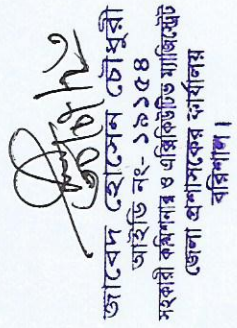 জাবেদ হোসেন চৌধুরী
আইডি নং- ১৯১৫৪
সহকারী কমিশনার ও এক্সিকিউটিভ ম্যাজিস্ট্রেট
জেলা প্রশাসকের কার্যালয়
বরিশাল।